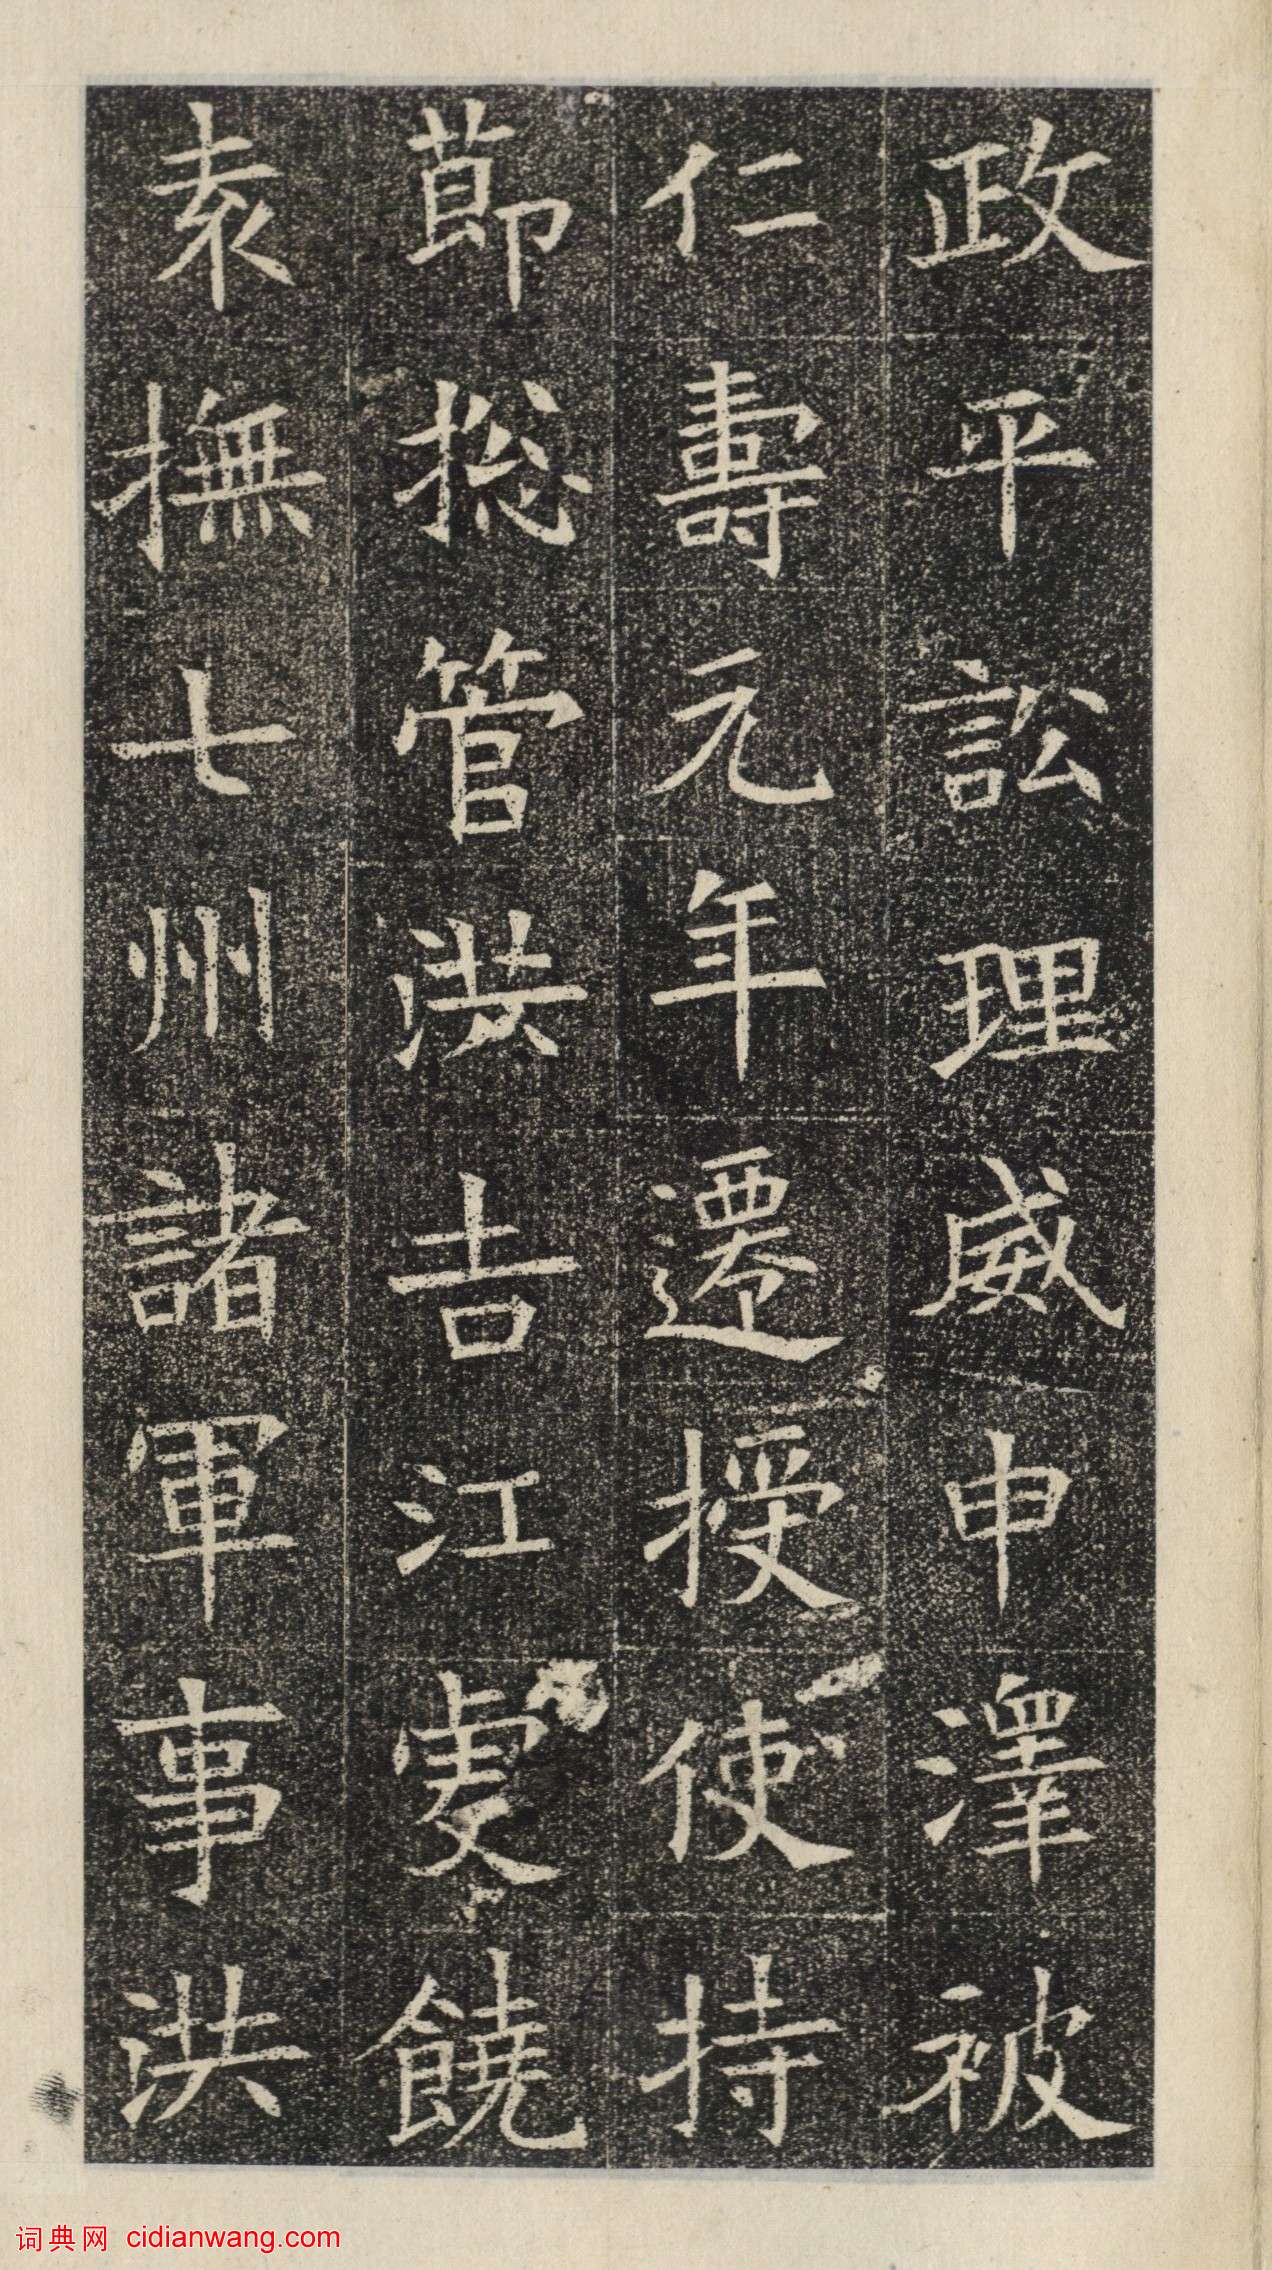 政平訟理威申澤被
仁壽元年遷授使持
節揔管洪吉江虔饒
袁撫七州諸軍事洪
词典网 cidianwang.com